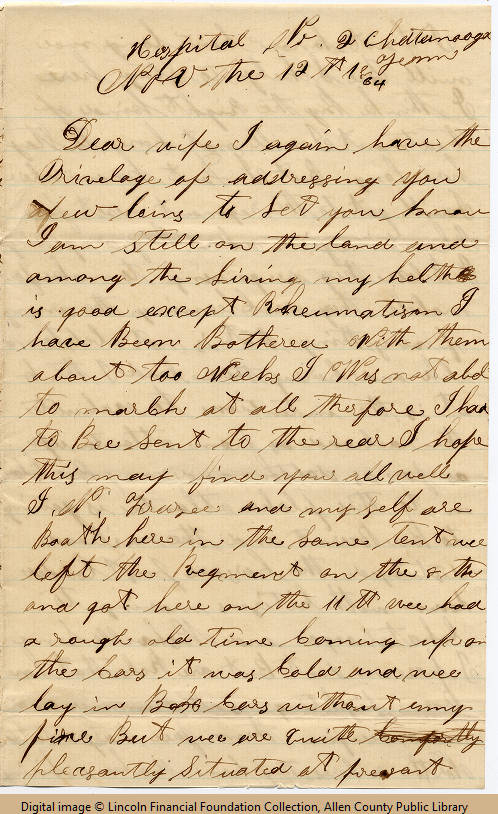 Hospital No. 2 Chattanooga
Tenn
Nov the 12th 1864
Dear wife I again have the
Privelage of addressing you
a few lains to let you know
I am still on the land and
among the living my helth
is good except Rheumatism I
have Been Bothered With them
about too Weeks I Was not abel
to martch at all therfore I had
to Bee Sent to the rear I hope
this may find you all well
I. N. Frazee and my self are
Boath here in the same tent wee
left the Regment on the 8 th
and got here on the 11 th wee had
a rough old time Coming up on
the Cars it was Cold and wee
lay in Box Cars without enny
fire But wee are quite
pleasantly Situated at presant
Digital image © Lincoln Financial Foundation Collection, Allen County Public Library